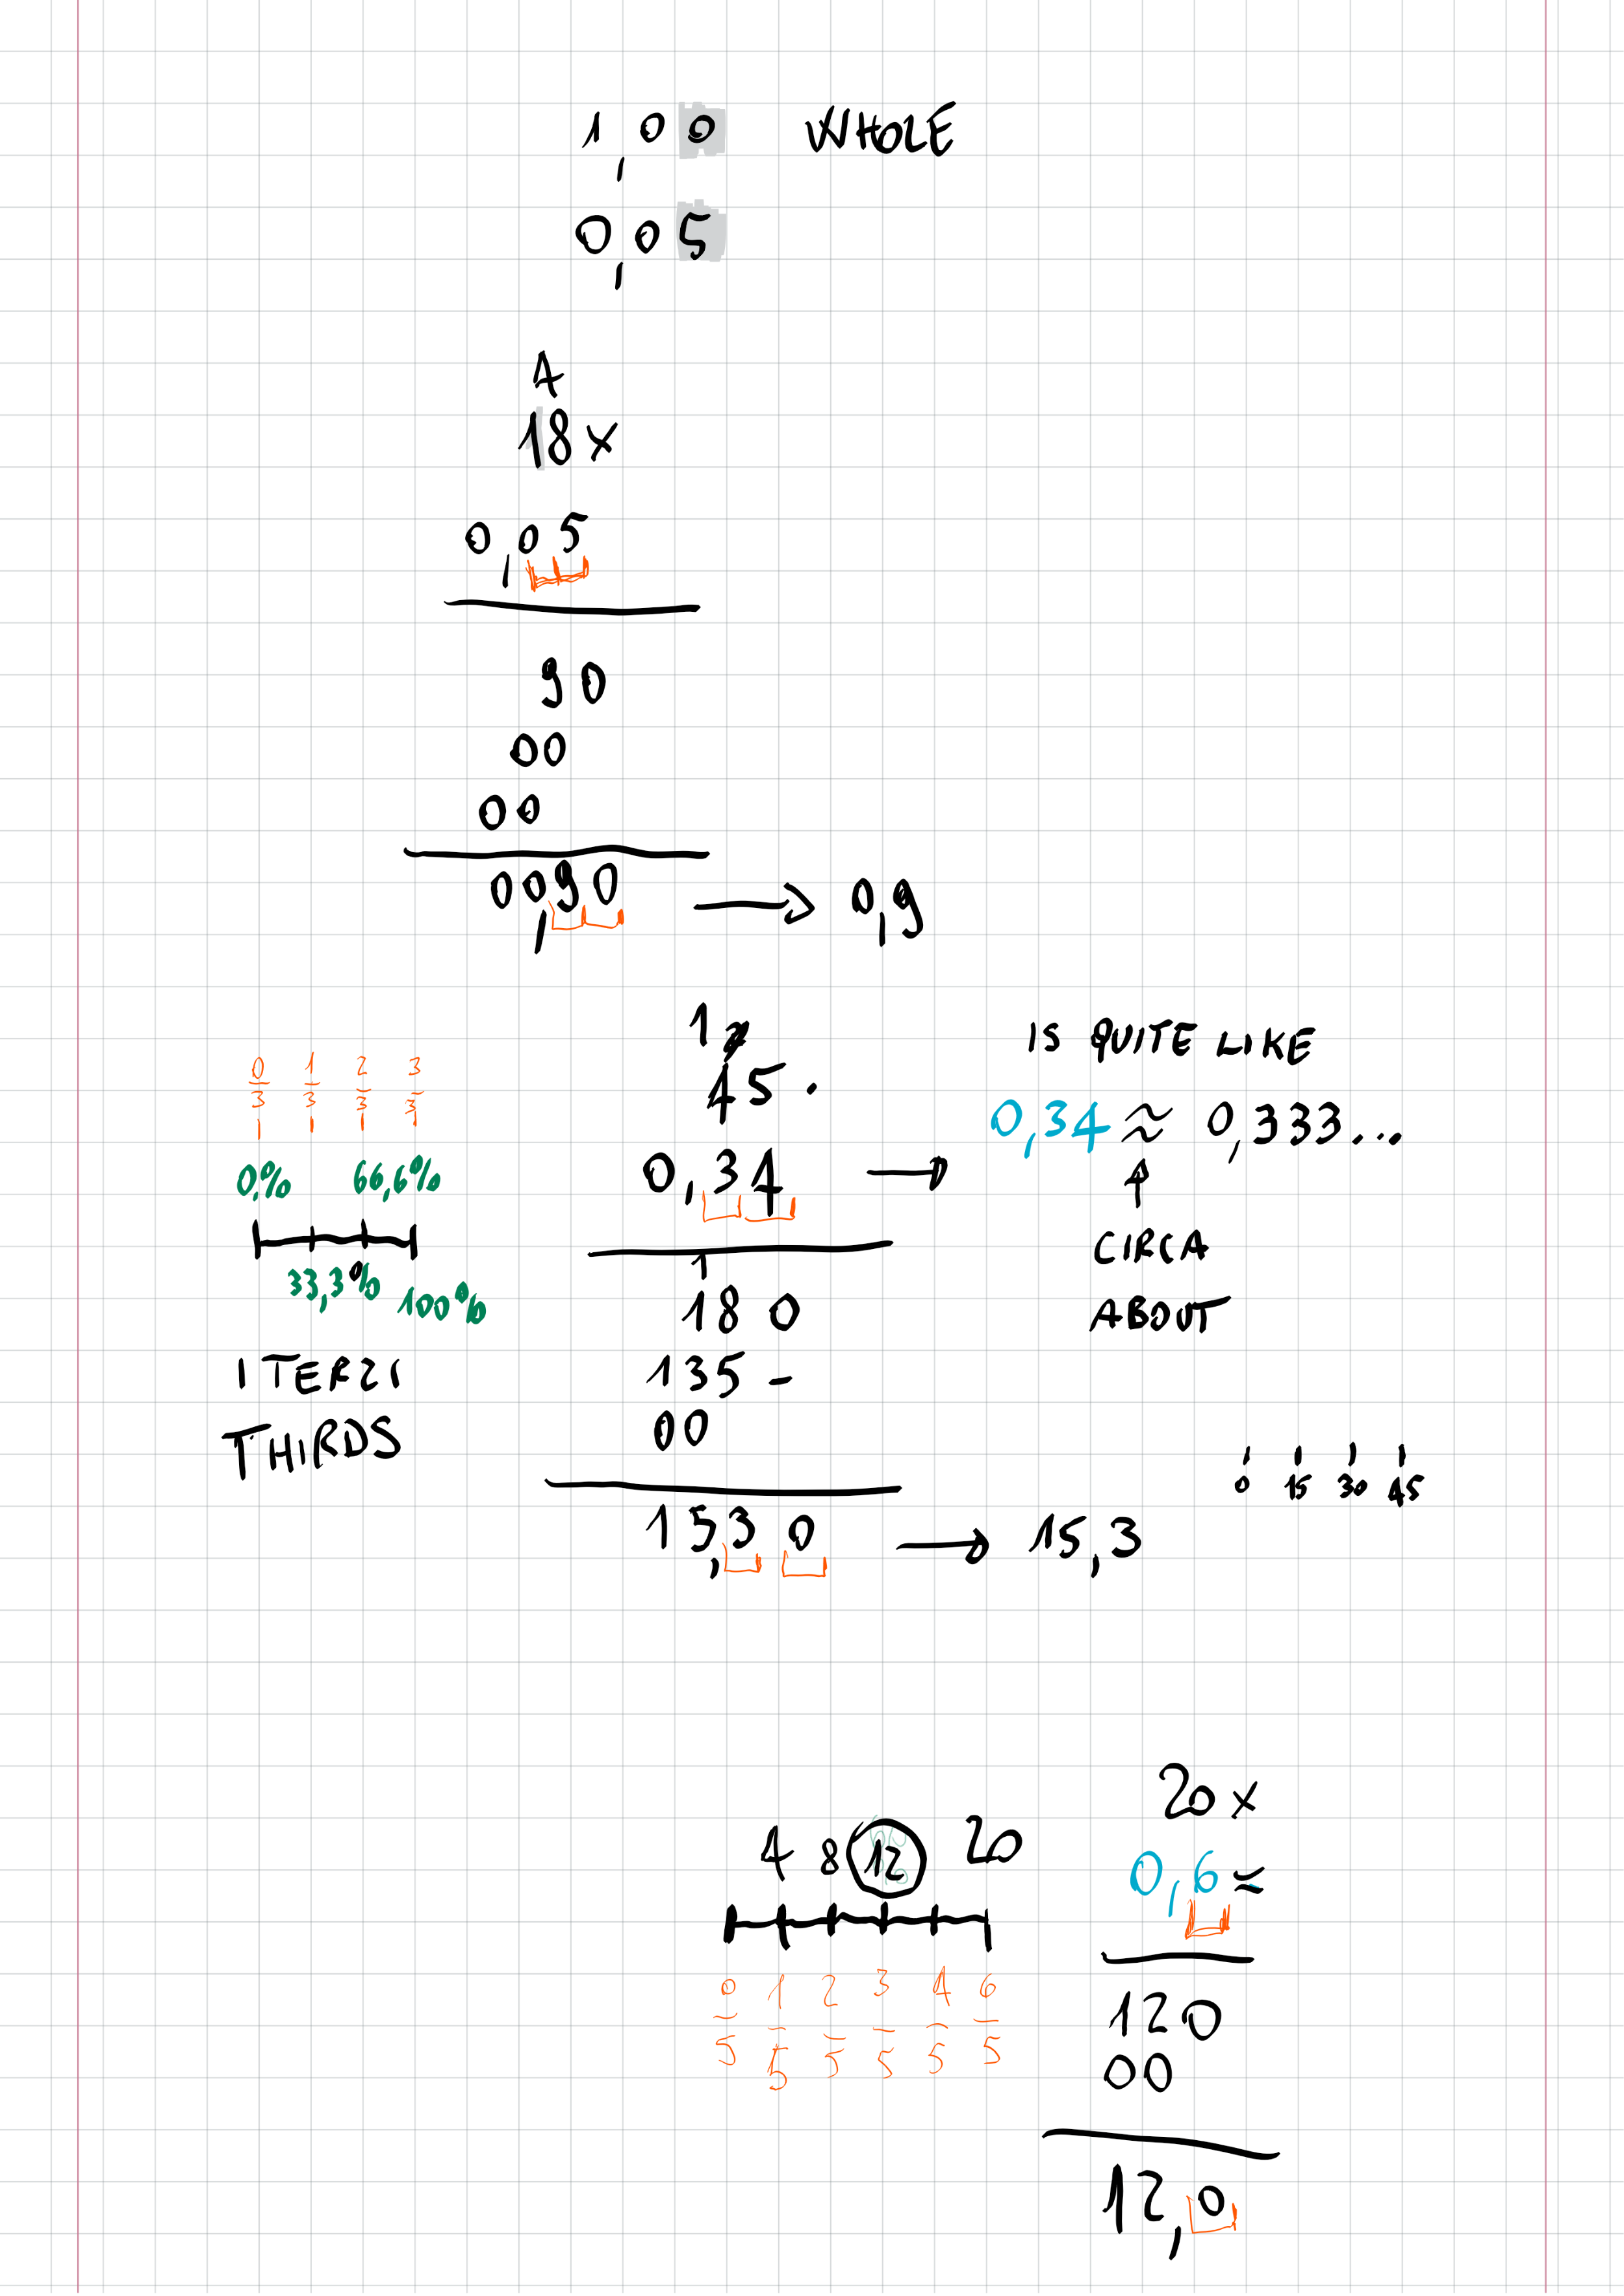 1,00 WHOLE
0,05
4
18 x
0,05
90
00
00
00,90 → 0,9
1
45 ·
0,34 →
180
135 -
00
15,30 → 15,3
IS QUITE LIKE
0,34 ≈ 0,333...
↑
CIRCA
ABOUT
0/3 1/3 2/3 3/3
0,% 66,6%
33,3% 100%
I TERZI
THIRDS
0 15 30 45
4 8 12 20
0/5 1/5 2/5 3/5 4/5 6/5
20 x
0,6 =
120
00
12,0